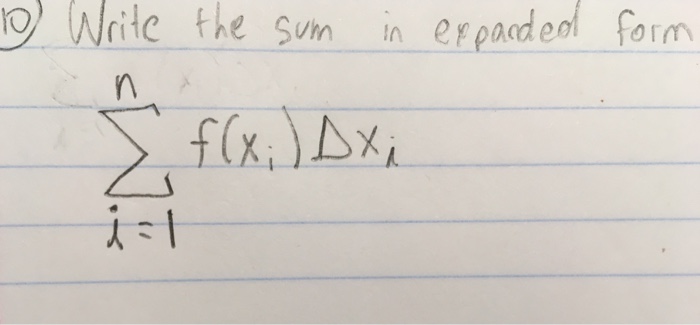 10) Write the sum in expanded form
n
∑ f(xᵢ) Δxᵢ
i=1